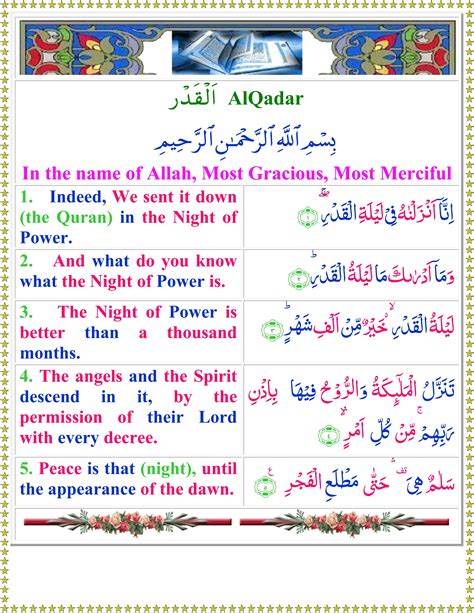 اَلْقَدْر AlQadar
بِسْمِ ٱللَّهِ ٱلرَّحْمَـٰنِ ٱلرَّحِيمِ
In the name of Allah, Most Gracious, Most Merciful
1. Indeed, We sent it down
(the Quran) in the Night of
Power.
اِنَّاۤ اَنْزَلْنٰهُ فِیْ لَیْلَةِ الْقَدْرِ ۚۖ ﴿۱﴾
2. And what do you know
what the Night of Power is.
وَمَاۤ اَدْرٰىكَ مَا لَیْلَةُ الْقَدْرِ ؕ ﴿۲﴾
3. The Night of Power is
better than a thousand
months.
لَیْلَةُ الْقَدْرِ ۙ۬ خَیْرٌ مِّنْ اَلْفِ شَهْرٍ ؕ ﴿۳﴾
4. The angels and the Spirit
descend in it, by the
permission of their Lord
with every decree.
تَنَزَّلُ الْمَلٰٓئِكَةُ وَالرُّوْحُ فِیْهَا بِاِذْنِ
رَبِّهِمْ ۚ مِّنْ كُلِّ اَمْرٍ ۙۛ ﴿۴﴾
5. Peace is that (night), until
the appearance of the dawn.
سَلٰمٌ ۛ۫ هِیَ حَتّٰی مَطْلَعِ الْفَجْرِ ﴿۵﴾